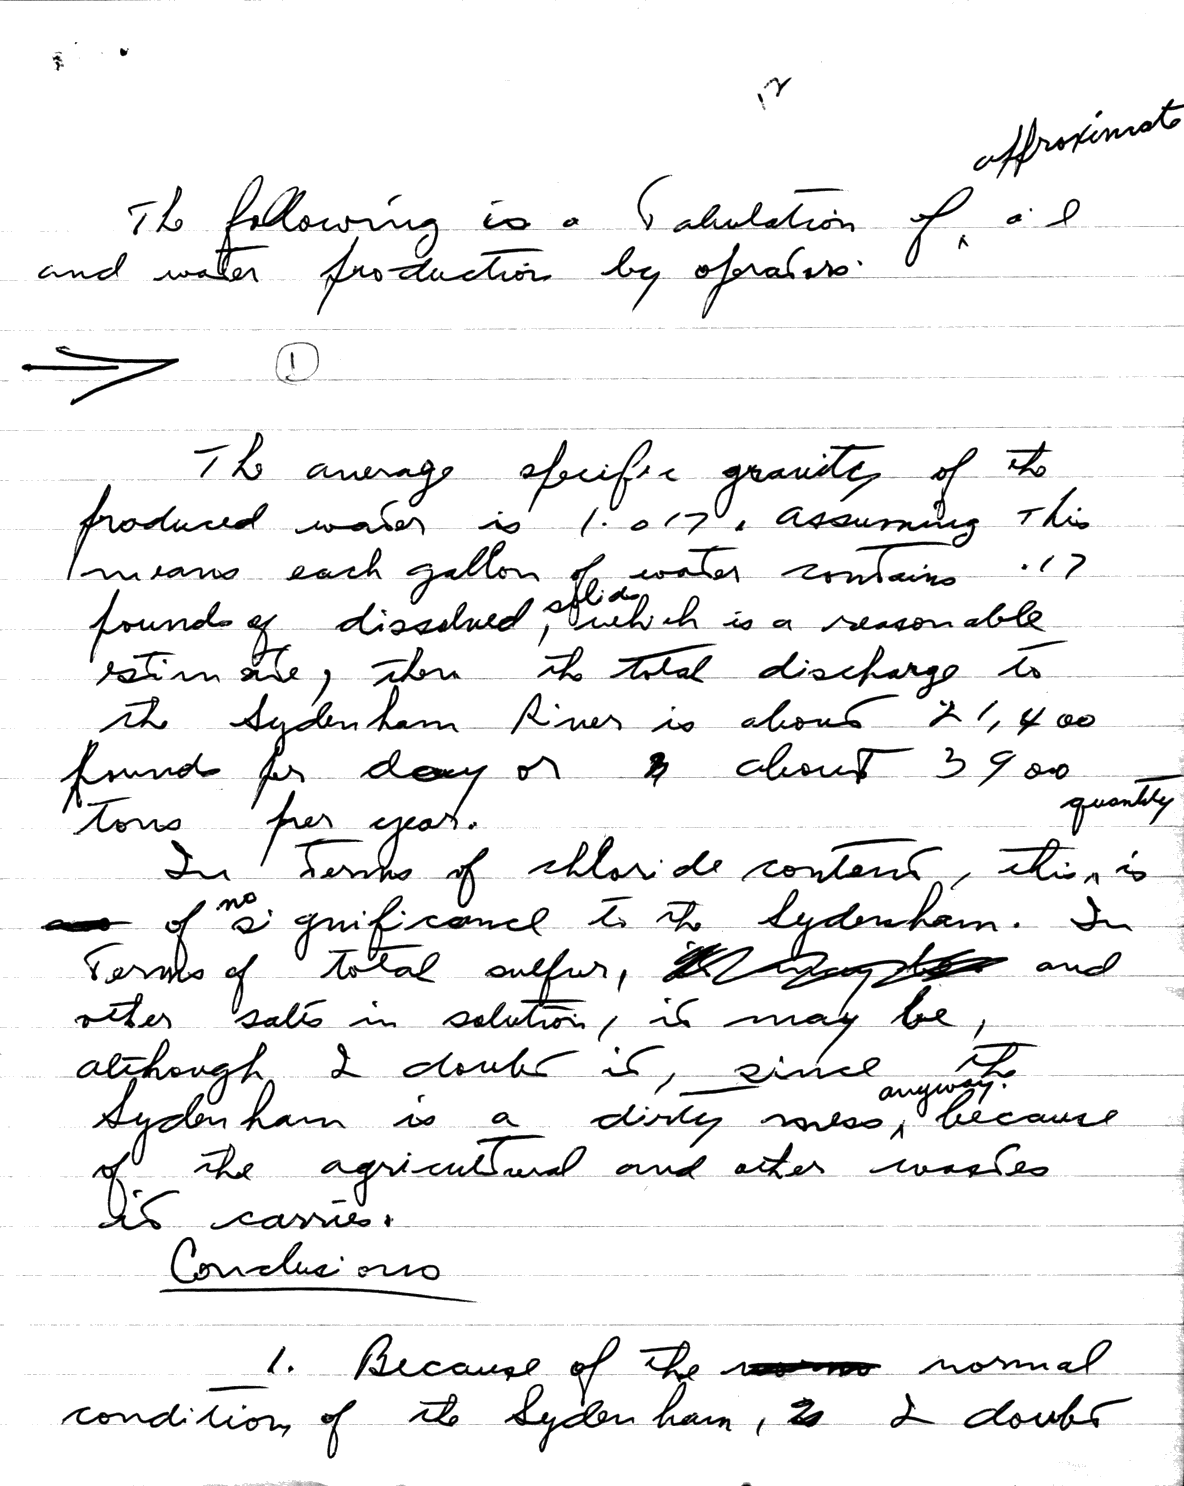 12
approximate
The following is a Tabulation of ^ oil
and water production by operators.
①
The average specific gravity of the
produced water is 1.017. Assuming This
means each gallon of water contains .17
solids
pounds of dissolved, which is a reasonable
estimate, then the total discharge to
the Sydenham River is about 21,400
pounds per day or about 3900
quantity
tons per year.
In Terms of chloride content, this ^ is
no
of significance to the Sydenham. In
Terms of total sulfur, and
other salts in solution, it may be,
although I doubt it, since the
anyway.
Sydenham is a dirty mess ^ because
of the agricultural and other wastes
it carries.
Conclusions
1. Because of the normal
condition of the Sydenham, I doubt